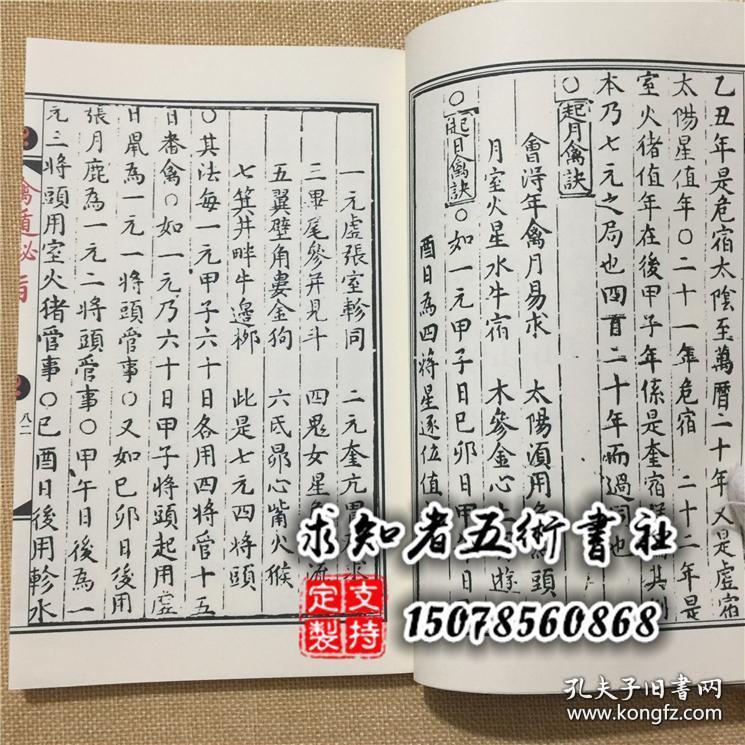 乙丑年是危宿太陰至萬曆二十年又是虛宿
太陽星值年○二十一年危宿 二十二年是
室火猪值年在後甲子年係是奎宿
本乃七元之局也四百二十年而過
○起月禽訣
會淂年禽月易求 太陽湏用 頭
月室火星水牛宿 木參金心 遊
○起日禽訣○如一元甲子日巳卯日甲 日
酉日為四将星逐位值
一元虛張室軫同 二元奎亢
三畢尾參井見斗 四鬼女星
五翼壁角婁金狗 六氐昴心觜火猴
七箕井畔牛邊栁 此是七元四将頭
○其法每一元甲子六十日各用四将管十五
日番禽○如一元乃六十日甲子将頭起用虛
日鼠為一元一将頭管事○又如巳卯日後用
張月鹿為一元二将頭管事○甲午日後為一
元三将頭用室火猪管事○巳酉日後用軫水
禽遁秘旨
八二
求知者五術書社
支持定製
15078560868
孔夫子旧書网
www.kongfz.com